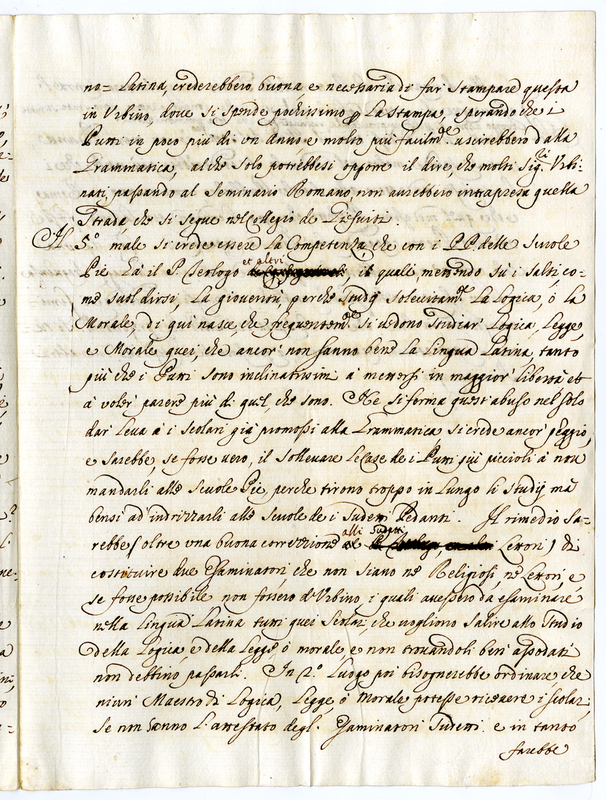 no= Latina, crederebbero buona e necessaria di far stampare questa
in Urbino, dove si spende pochissimo p la stampa, sperando che i
Putti in poco più di un Anno e molto più facilmte uscirebbero dalla
Grammatica, al che solo potrebbesi opporre il dire, che molti Sigri Urbi-
nati, passando al Seminario Romano, non aurebbero intrapresa quella
Strada, che si segue nel Collegio de Giesuiti.
5.º male si crede essere la Competenza, che con i PP. delle Scuole
Pie hà il P. Teologo et alcri i quali, mettendo sù i salti, co-
me suol dirsi, la gioventù perche studij sollecitamte la Logica, ò la
Morale, di quì nasce, che frequentemte si vedono studiar Logica, Legge,
e Morale quei, che ancor' non sanno bene la Lingua Latina, tanto
più che i Putti sono inclinatissimi à mettersi in maggior' libertà et
à voler' parere più di quel che sono. Ne si forma quest'abuso nel solo
dar leva à i scolari già promossi alla Grammatica si crede ancor' peggio,
e sarebbe, se fosse vero, il sollevare le Case de i Putti più piccioli à non
mandarli alle Scuole Pie, perche tirono troppo in lungo li studij mà
bensì ad indrizzarli alle Scuole de i Sudetti Pedanti. Il rimedio sa-
rebbe (oltre una buona correzzione alli Sudetti Lettori) di
costituire due Esaminatori, che non siano nè Religiosi, nè Lettori, e
se fosse possibile non fossero d'Urbino i quali avessero da esaminare
nella Lingua Latina tutti quei Scolari, che vogliono salire allo Studio
della Logica, e della Legge, ò morale e non trovandoli ben' assodati
non debbino passarli. In 2.º Luogo poi bisognerebbe ordinare che
niun' Maestro di Logica, Legge, ò Morale potesse ricevere i scolari,
se non hanno l'attestato degl' Esaminatori Sudetti e in tanto
farebbe